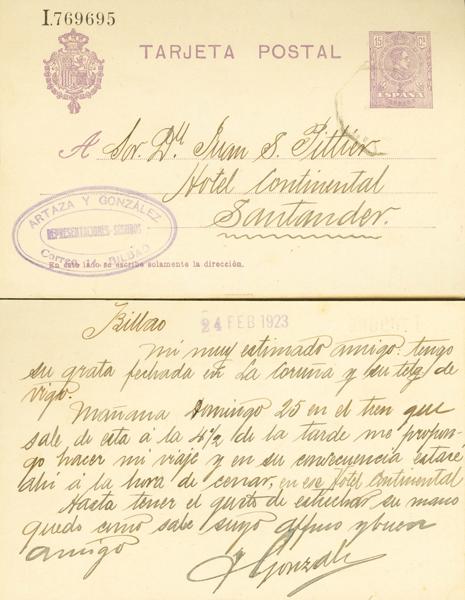 I.769695
TARJETA POSTAL
15 Cs.
ESPAÑA
A Sor. Dn Juan S. Pittier
Hotel Continental
Santander.
ARTAZA Y GONZÁLEZ
REPRESENTACIONES-SEGUROS
Correo 14 BILBAO
En este lado se escribe solamente la dirección.
Bilbao
24 FEB 1923
Mi muy estimado amigo: tengo
su grata fechada en La Coruña y su telg de
vigo.
Mañana Domingo 25 en el tren que
sale de esta á la 4½ de la tarde me propon-
go hacer mi viaje y en su consecuencia estaré
ahi á la hora de cenar, en ese Hotel Continental
Hasta tener el gusto de estrechar su mano
quedo como sabe suyo affmo y buen
amigo
Gonzalz